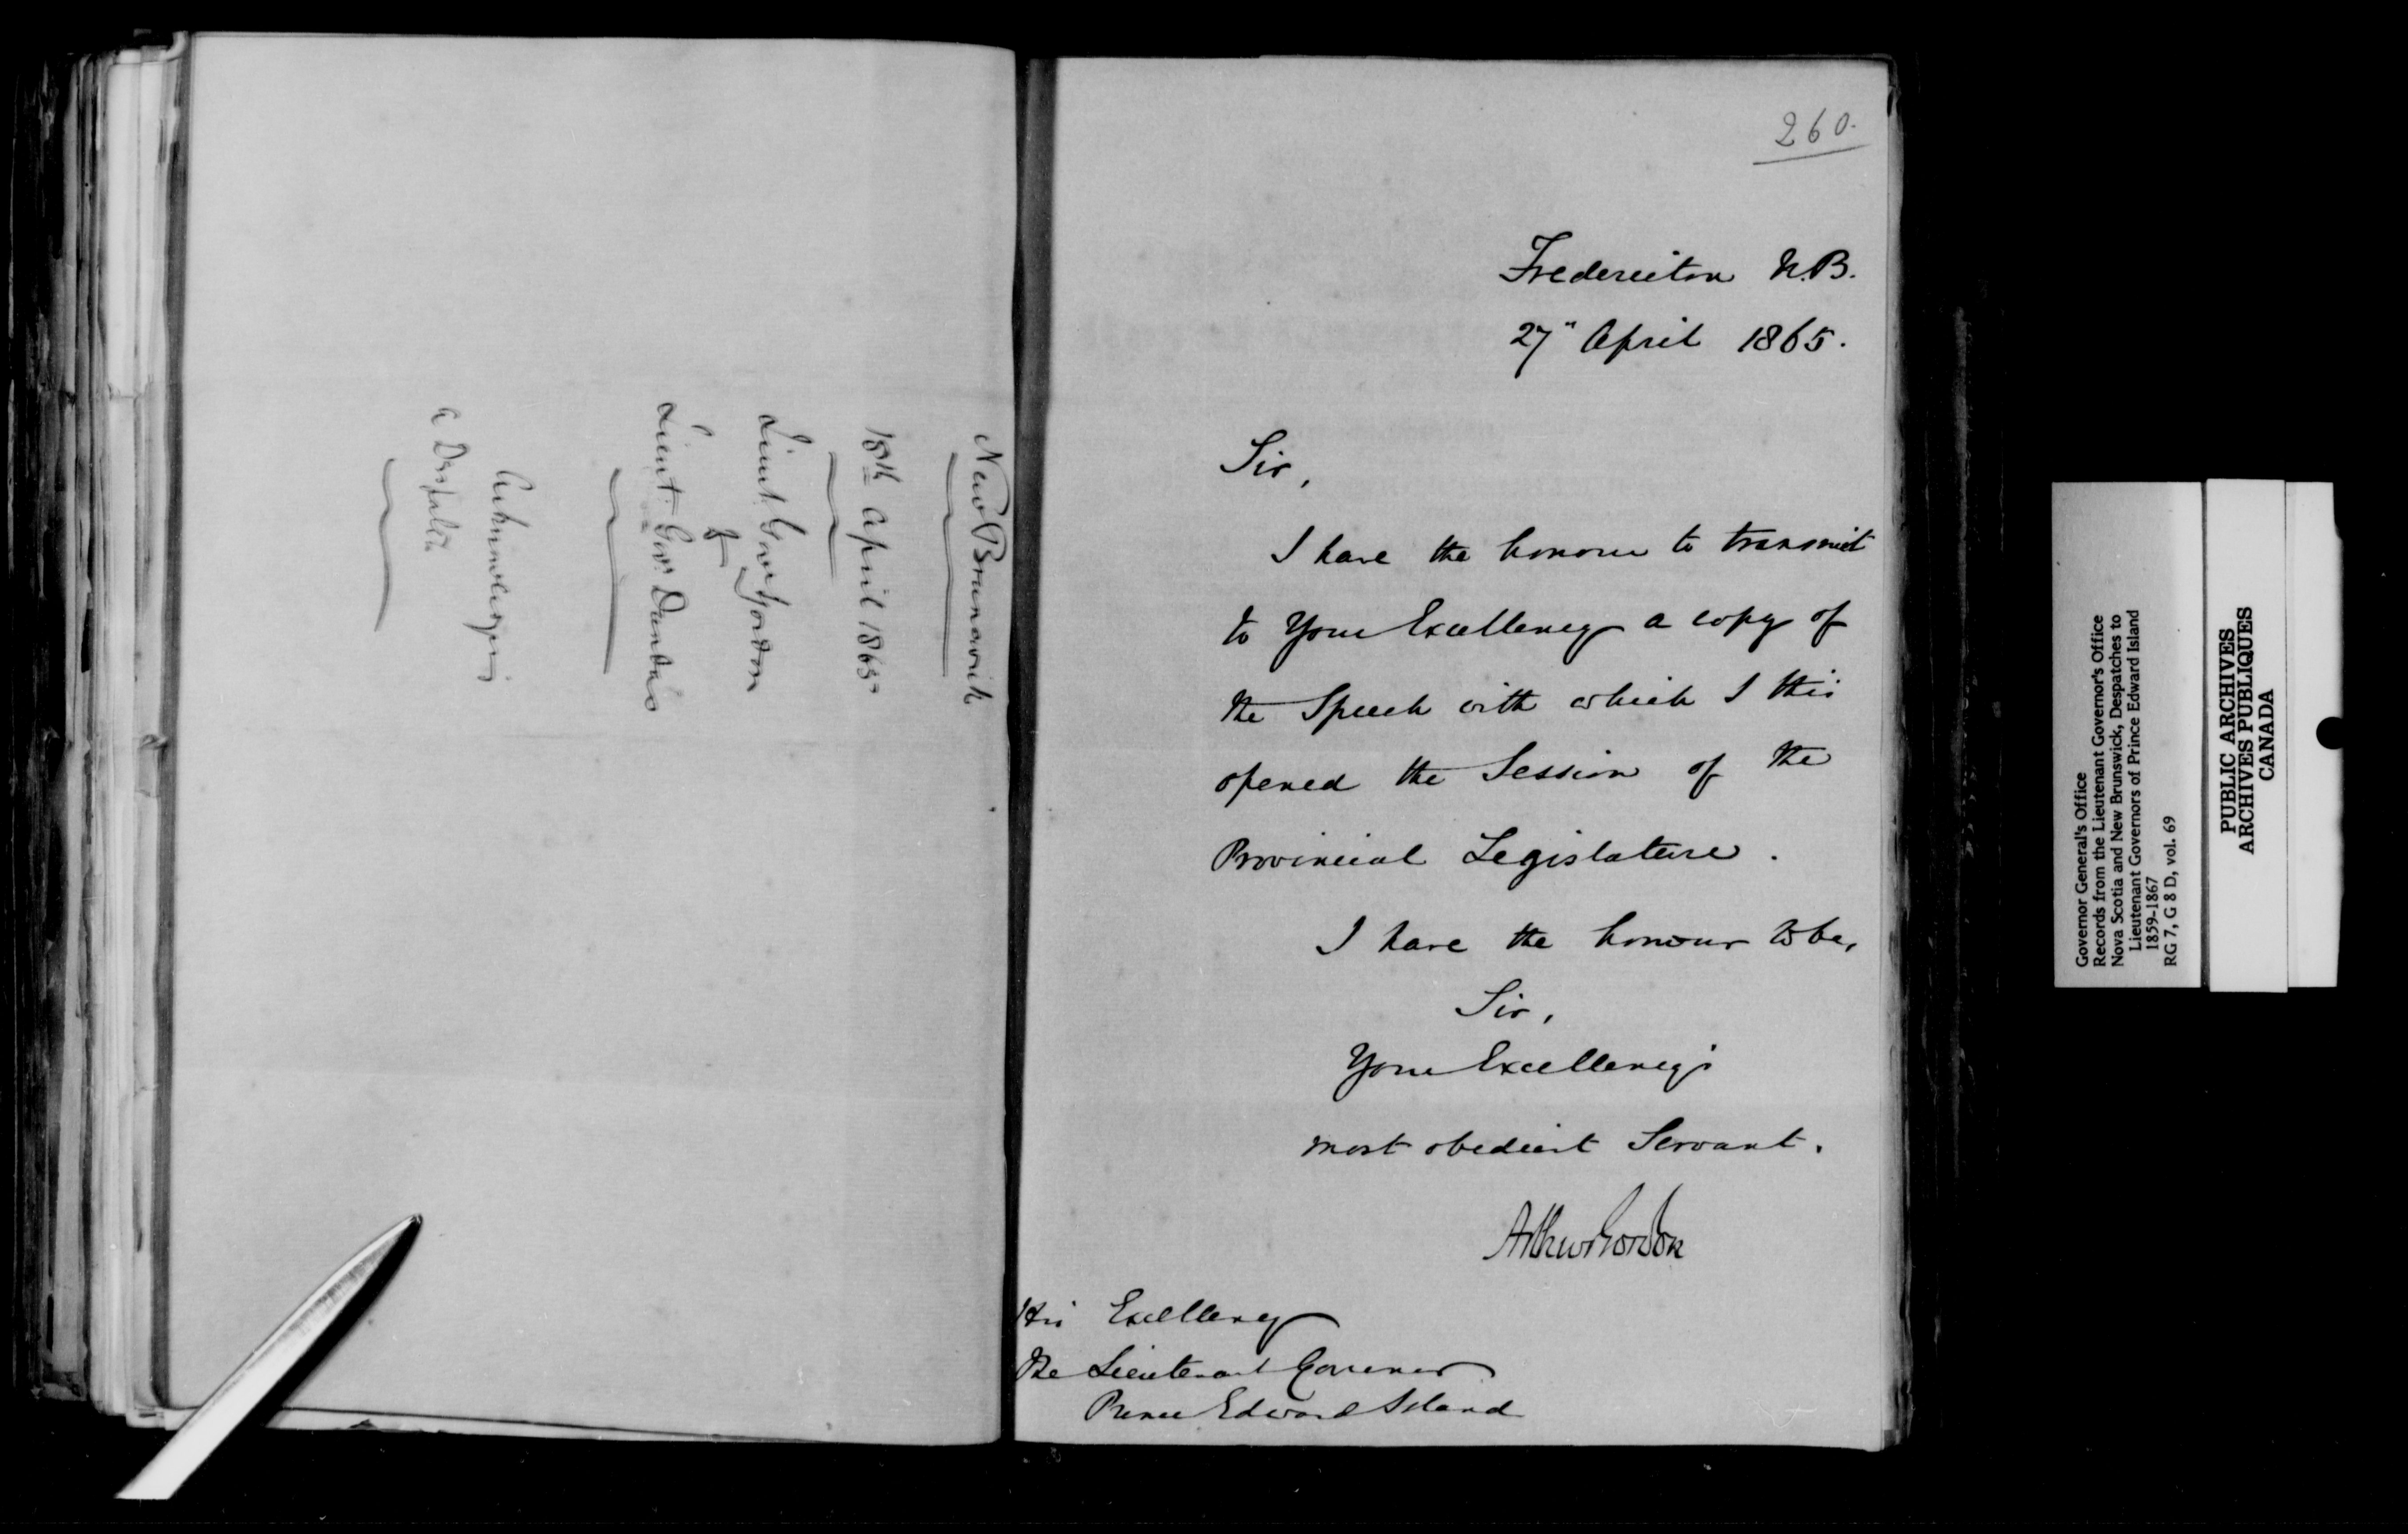 New Brunswick
18th April 1865
Lieut. Gov. Gordon
to
Lieut. Gov. Dundas
Acknowledging
a Despatch
260.
Fredericton N.B.
27" April 1865.
Sir,
I have the honour to transmit
to Your Excellency a copy of
the Speech with which I this
opened the Session of the
Provincial Legislature.
I have the honour to be,
Sir,
Your Excellency's
most obedient Servant.
Arthur Gordon
His Excellency
The Lieutenant Governor
Prince Edward Island
Governor General's Office
Records from the Lieutenant Governor's Office
Nova Scotia and New Brunswick, Despatches to
Lieutenant Governors of Prince Edward Island
1859-1867
RG 7, G 8 D, vol. 69
PUBLIC ARCHIVES
ARCHIVES PUBLIQUES
CANADA